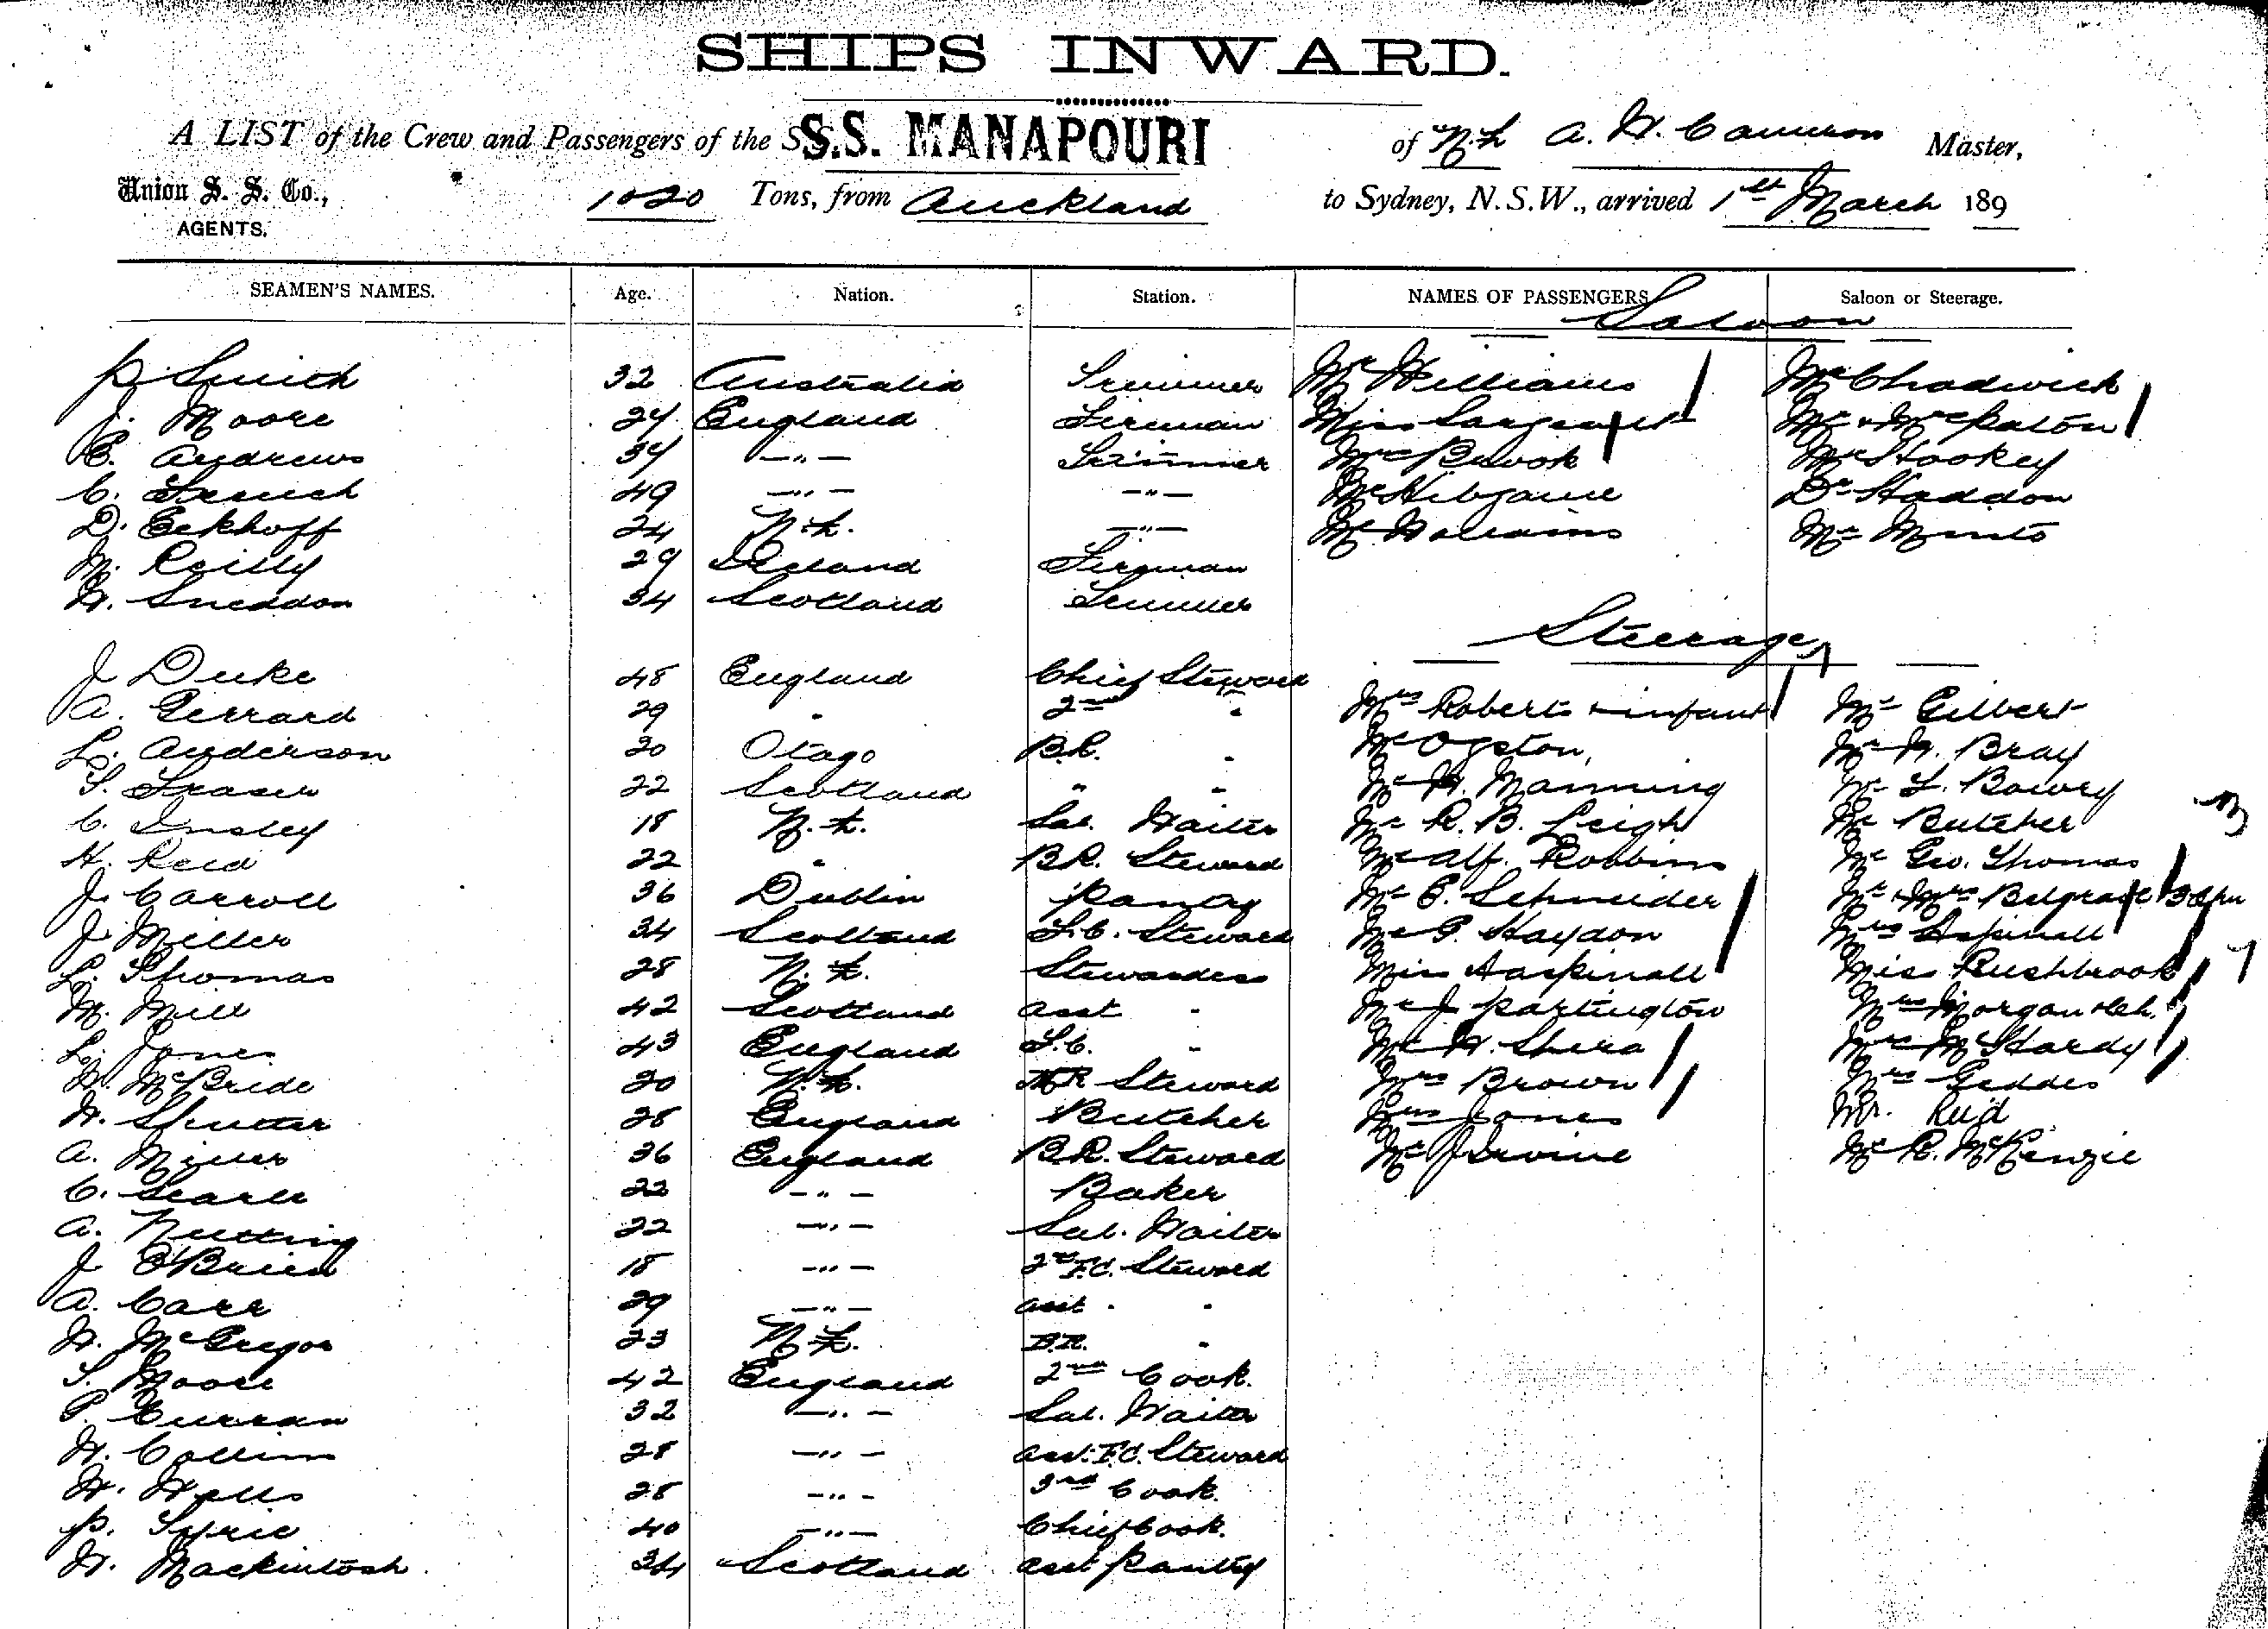 SHIPS INWARD.
A LIST of the Crew and Passengers of the S.S. S.S. MANAPOURI of N.Z. A. W. Cameron Master,
Union S. S. Co., AGENTS. 1020 Tons, from Auckland to Sydney, N.S.W., arrived 1st March 189
SEAMEN'S NAMES. Age. Nation. Station. NAMES OF PASSENGERS Saloon or Steerage.
Saloon
P. Smith 32 Australia Trimmer Mr Williams Mr Chadwick
J. Moore 24 England Fireman Miss Sargeant Mr + Mrs Paton
E. Andrews 34 -"- Trimmer Mrs Brook Mr Hookey
C. French 49 -"- -"- Mr Dr Haddon
D. Eckhoff 24 N.Z. -"- Mr Williams Mr Minto
M. Reilly 29 Ireland Fireman
W. Sneddon 34 Scotland Trimmer
Steerage
J Duke 48 England Chief Steward
A. Gerrard 29 " 2nd " Mrs Roberts + infant Mr Gilbert
L. Anderson 20 Otago B.R. " Mr Ogston, Mr W. Bray
S. Fraser 22 Scotland " " Mr W. Manning Mr Bowey
C. Insley 18 N.Z. Sal. Waiter Mr R. B. Leigh Mr Butcher
H. Reid 22 " B.R. Steward Mr Alf. Robbins Mr Geo. Thomas
J. Carroll 36 Dublin Pantry Mr E. Schneider Mr + Mrs Belgrave
J. Miller 34 Scotland F.C. Steward Mr G. Haydon Mrs Aspinall
L. Thomas 28 N.Z. Stewardess Miss Aaspinall Miss Rushbrook
M. Mill 42 Scotland Asst " Mr J Partington Mrs Morgan + ch.
L. Jones 43 England S.C. " Mr W. Shera Mrs McHardy
W. McBride 20 N.Z. Steward Mrs Brown Mrs Geddes
W. Shutter 28 England Butcher Mrs Jones Mr. Reid
A. Miller 36 England B.R. Steward Mr J Irvine Mr R. McKenzie
C. Searle 22 -"- Baker
A. Nutting 22 -"- Sal. Waiter
J O'Brien 18 -"- 2nd F.C. Steward
A. Carr 29 -"- Asst " "
W. McGregor 23 N.Z. B.R. "
S. Moore 42 England 2nd Cook.
P. Curran 32 -"- Sal. Waiter
W. Collins 28 -"- Asst. F.C. Steward
W. Wells 28 -"- 3rd Cook.
P. 40 -"- Chief Cook.
W. Mackintosh 34 Scotland Asst Pantry